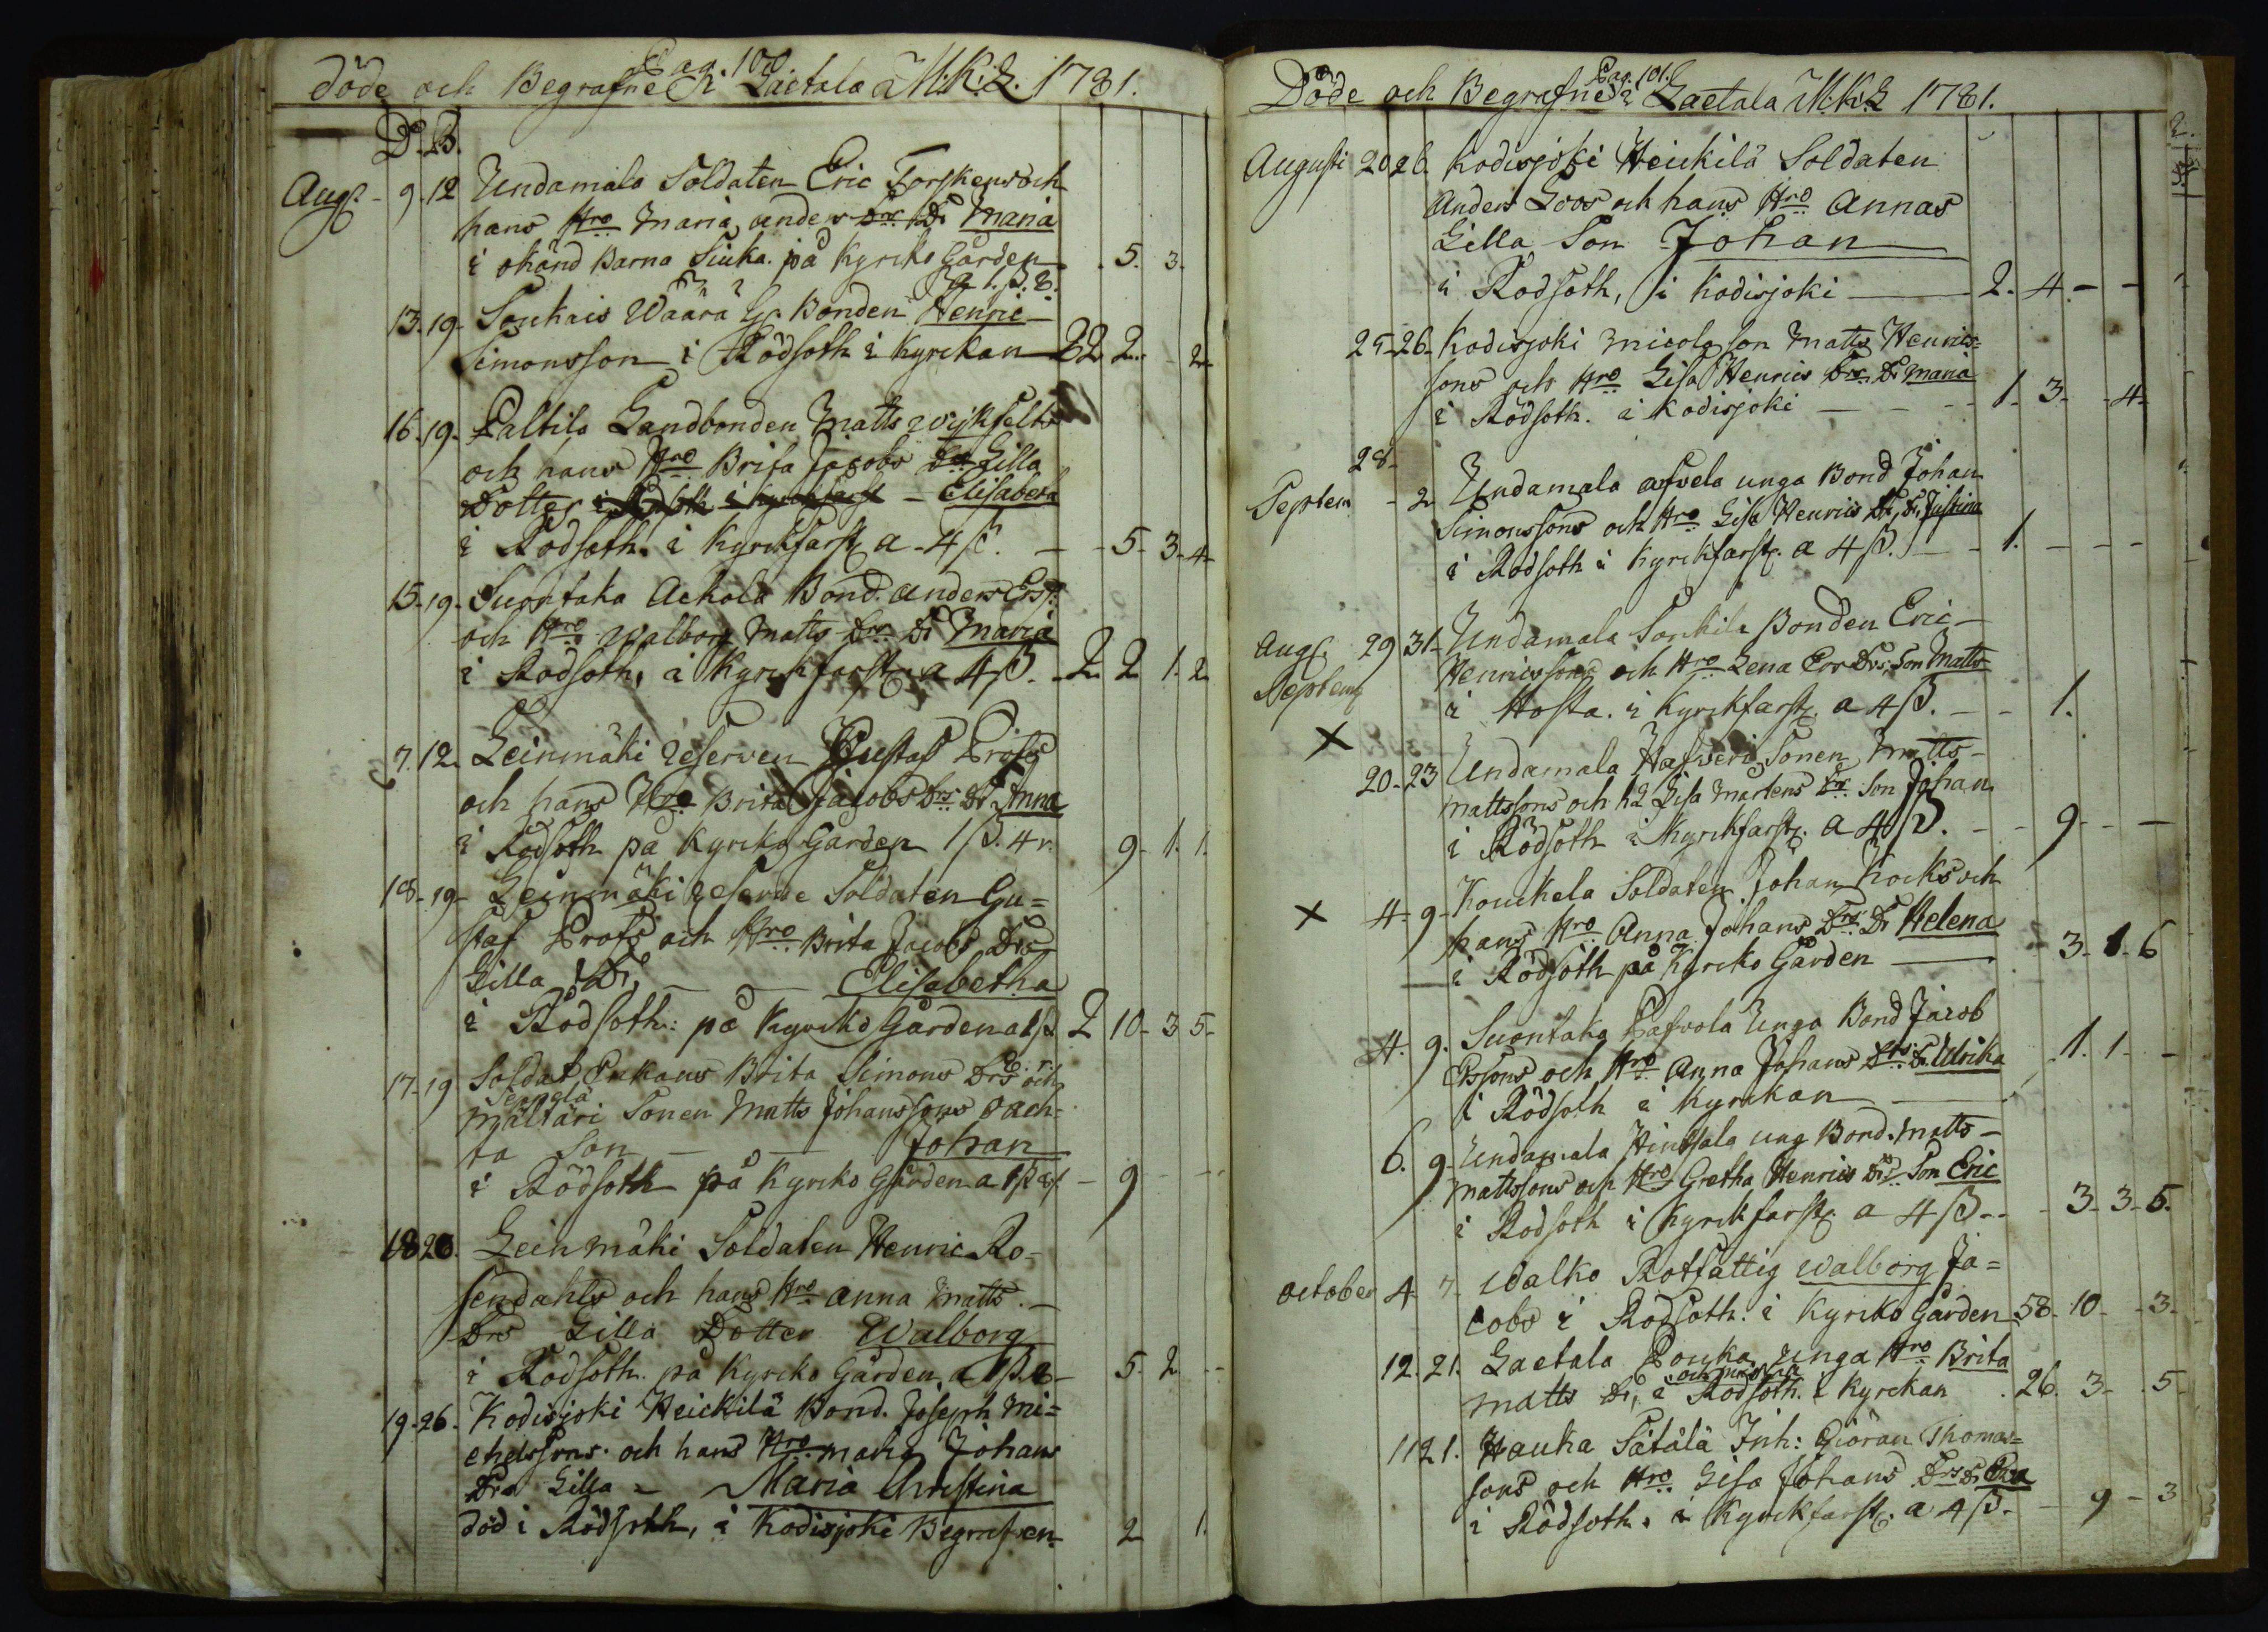 Pag. 100
döde och Begrafne i Laetala M.K.L. 1781.
D. B.
Aug. - 9. 12 Undamala Soldaten Eric Torskens och
hans Hro Maria anders Dr Maria
i okänd Barna Siuka. på Kyrko Gården 5. 3.
a 1. ß. 8.
13. 19. Soukais Waära Bonden Henric
Simonsson i Rödsoth i Kyrckan 22 2. - 2
16. 19. Paltila Landbonden Matts
och hans Hro Brita Jacobs Dr Lilla
Dotter - Elisabeta
i Rodsoth. i Kyrckfarst a - 4 ß. - - 5- 3- 4-
15. 19. Suontaka Ackola Bond. anders Ers:
och Hro Walborg Matts Drs Dr Maria
i Rodsoth, i Kyrckfarst a 4 ß. - 2. 2 1. 2
7. 12. Leinmäki reserven Gustaf Profs
och hans Hro Brita Jacobs Drs Dr Anna
i Rodsoth på Kyrko Gården 1 ß. 4 r. 9- 1. 1.
18. 19 - Leinmäki reserve Soldaten Gu=
staf Profs och Hro Brita Jacobs Drs
Lilla Dr, - - Elisabetha
i Rödsoth: på Kyrko Gården a 1 ß 2 10- 3 5-
17. 19 Soldat Enkans Brita Simons Drs och
mältäri Sonen Matts Johanssons oäch=
ta Son - - Johan
i Rödsoth på Kyrko Gården a 1 ß - 9 - - -
18 20. Leinmäki Soldaten Henric Ro=
sendahls och hans Hro anna Matts. -
Drs Lilla Dotter Walborg
i Rodsoth. på Kyrko Gården a 1 ß. 8 - 5. 2 - -
19. 26. Kodisjoki Heickilä Bond. Joseph Mi=
chelssons. och hans Hro Johans
Drs Lilla - Maria Christina
död i Rödsoth, i Kodisjoki Begrafven 2 1.
Pag. 101.
Döde och Begrafne i Laetala M.K.L 1781.
Augusti 20 26. Kodisjoki Heickilä Soldaten
Anders Loos och hans Hro Annas
Lilla Son Johan
i Rodsoth, i Kodisjoki 2. 4. - -
25. 26. Kodisjoki Micola son Matts Henrics=
sons och Hro Lisa Henrics Drs Dr Maria
i Rödsoth. i Kodisjoki - - - 1. 3- -4-
28 -
Septem - 2 Undamala unga Bond Johan
Simonssons och Hro Lisa Henrics Dr, Dr, Justina
i Rodsoth i Kyrckfarst. a 4 ß. - - 1. - - -
Aug. 29 31. Undamala Sonkila Bonden Eric -
Septem Henricssons och Hro Lena Ers Drs, Son Matts
i Hosta. i Kyrckfarst. a 4 ß. - - 1.
×
20. 23 Undamala Hafveri Sonen Matts -
Mattssons och h. Lisa Mårtens Dr Son Johan
i Rödsoth i Kyrckfarst. a 4 ß. - - 9. - -
× 4. 9 - Kouckela Soldaten Johan Kocks och
hans Hro Anna Johans Drs Dr Helena
i Rödsoth på Kyrcko Gården 3. 1. 6
4. 9. Suontaka Pafvola Unga Bond Jacob
Erssons och Hro Anna Johans Drs: D. Ulrika 1. 1. -
i Rödsoth i Kyrckan
6. 9. Undamala Hintsala ung Bond. Matts -
Mattssons och Hro Gretha Henrics Drs Son Eric
i Rodsoth i Kyrckfarst. a 4 ß. - - 3. 3. 5.
October 4. 7. Walko Rotfattig Walborg Ja=
cobs i Rodsoth. i Kyrcko Gården 58. 10. - 3.
12. 21. Laetala Pouka Unga Hro Brita
Matts Dr, i Rodsoth. i Kyrckan 26. 3. 5.
11 21. Hauka Sätälä Inh: Giöran Thomas=
sons och Hro Lisa Johans Drs Dr Eva
i Rödsoth. i Kyrckfarst. a 4 ß. - 9 - 3